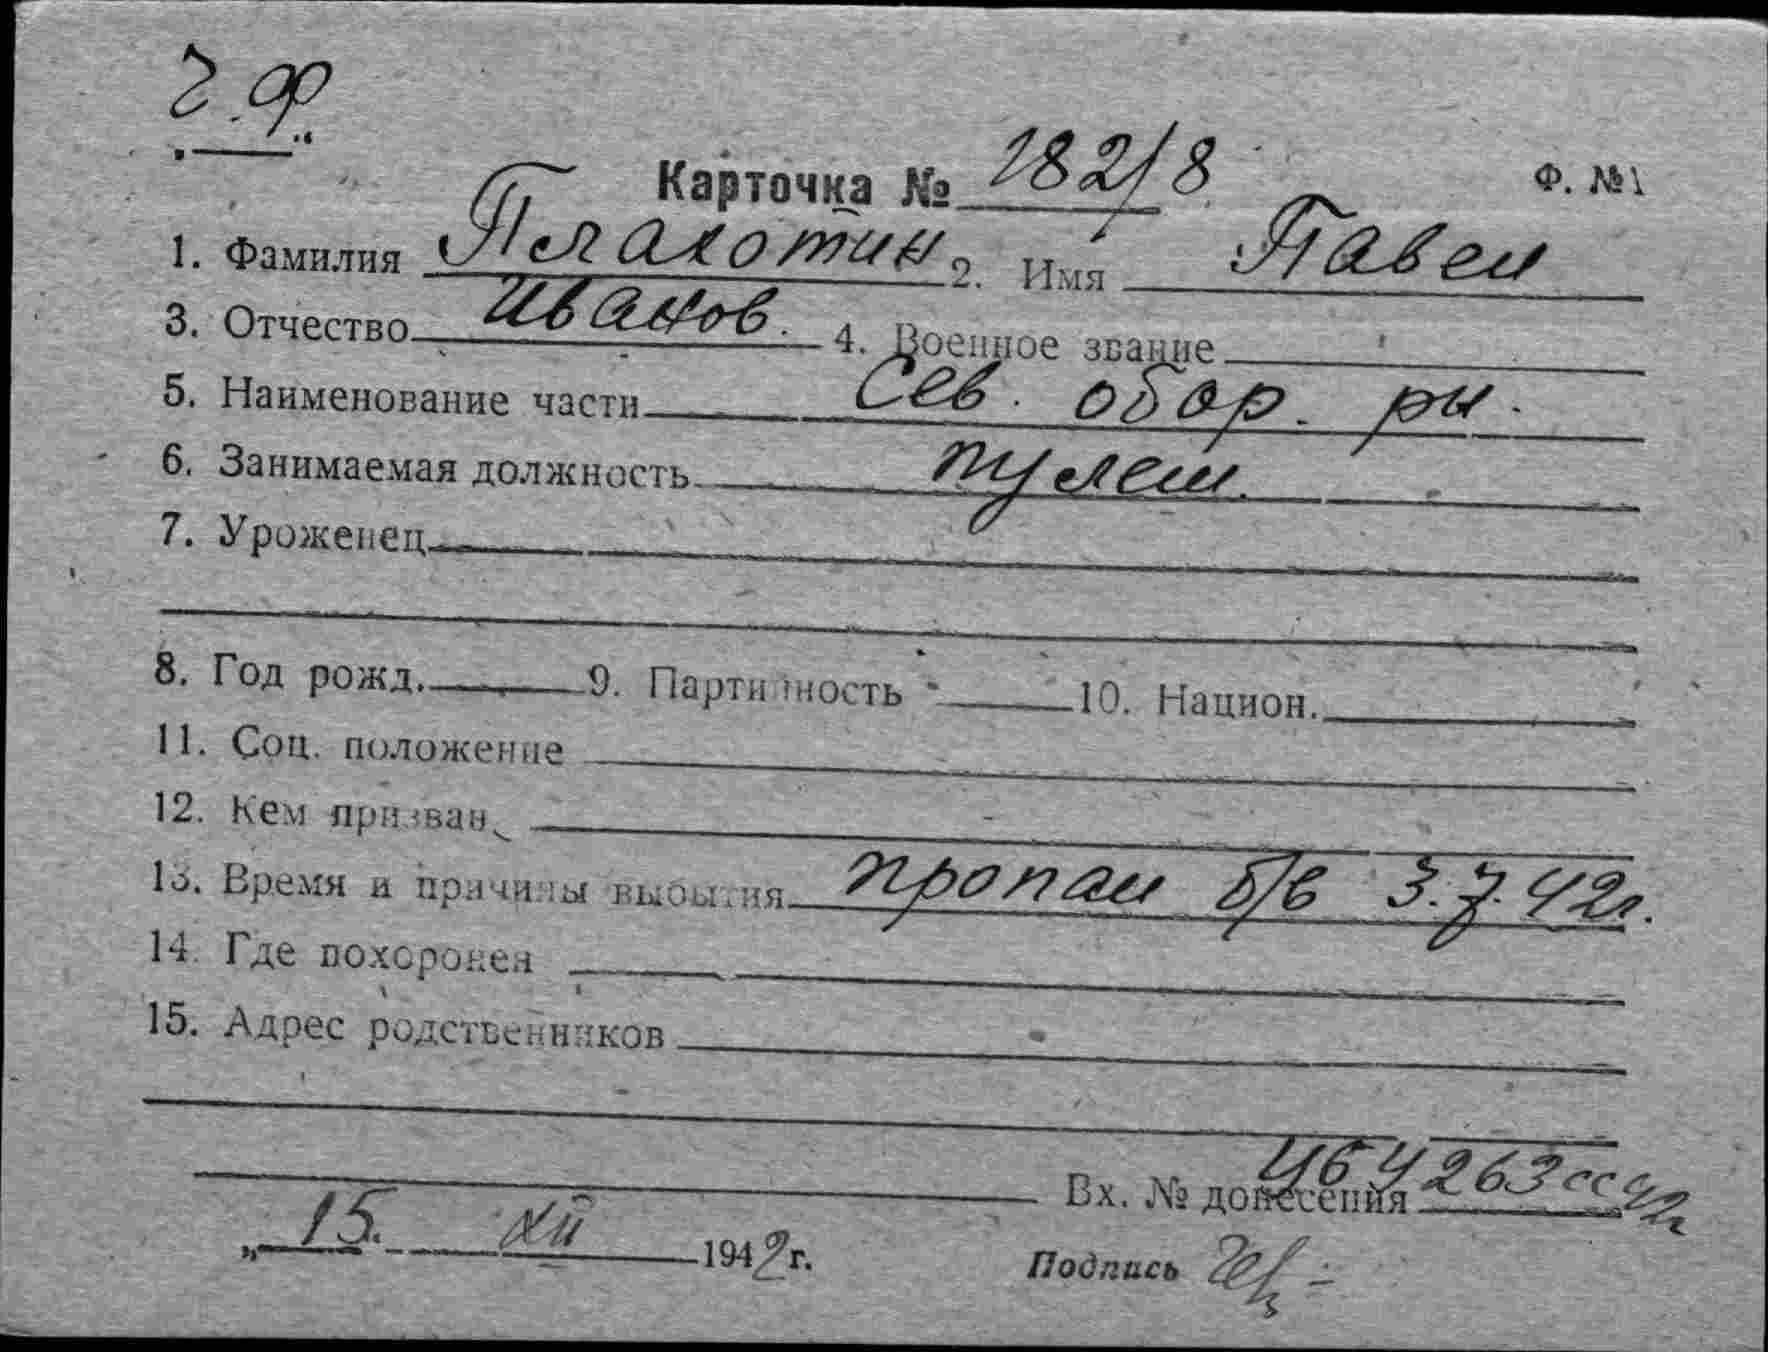 Ч.Ф.
Карточка № 282/8 Ф. №1
1. Фамилия Плахотин 2. Имя Павел
3. Отчество Иванов. 4. Военное звание
5. Наименование части Сев. обор. р-н.
6. Занимаемая должность пулем.
7. Уроженец
8. Год рожд. 9. Партийность 10. Национ.
11. Соц. положение
12. Кем призван
13. Время и причины выбытия пропал б/в 3.7.42г.
14. Где похоронен
15. Адрес родственников
Вх. № донесения 263сс 42г
„ 15. XII 1942 г. Подпись